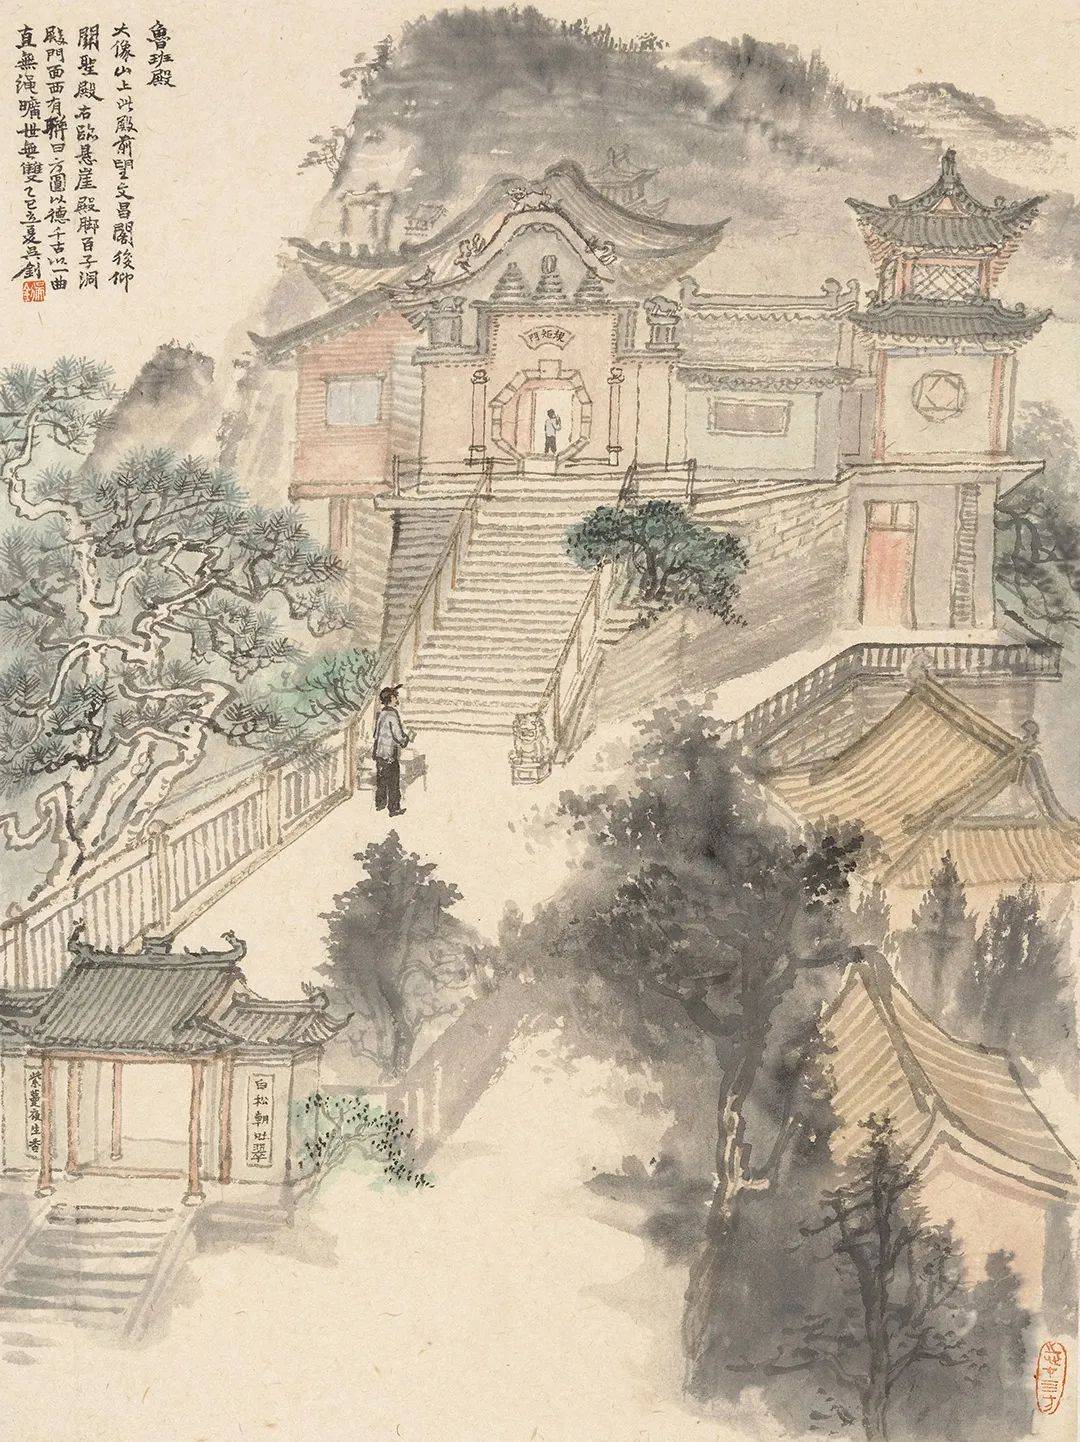 魯班殿
大像山上此殿前望文昌閣後仰
關聖殿右臨悬崖殿脚百子洞
殿門面西有聯曰方圓以德千古以一曲
直無绳曠世無雙乙巳立夏吴釗
規矩門
紫薑夜生香
白松朝吐翠